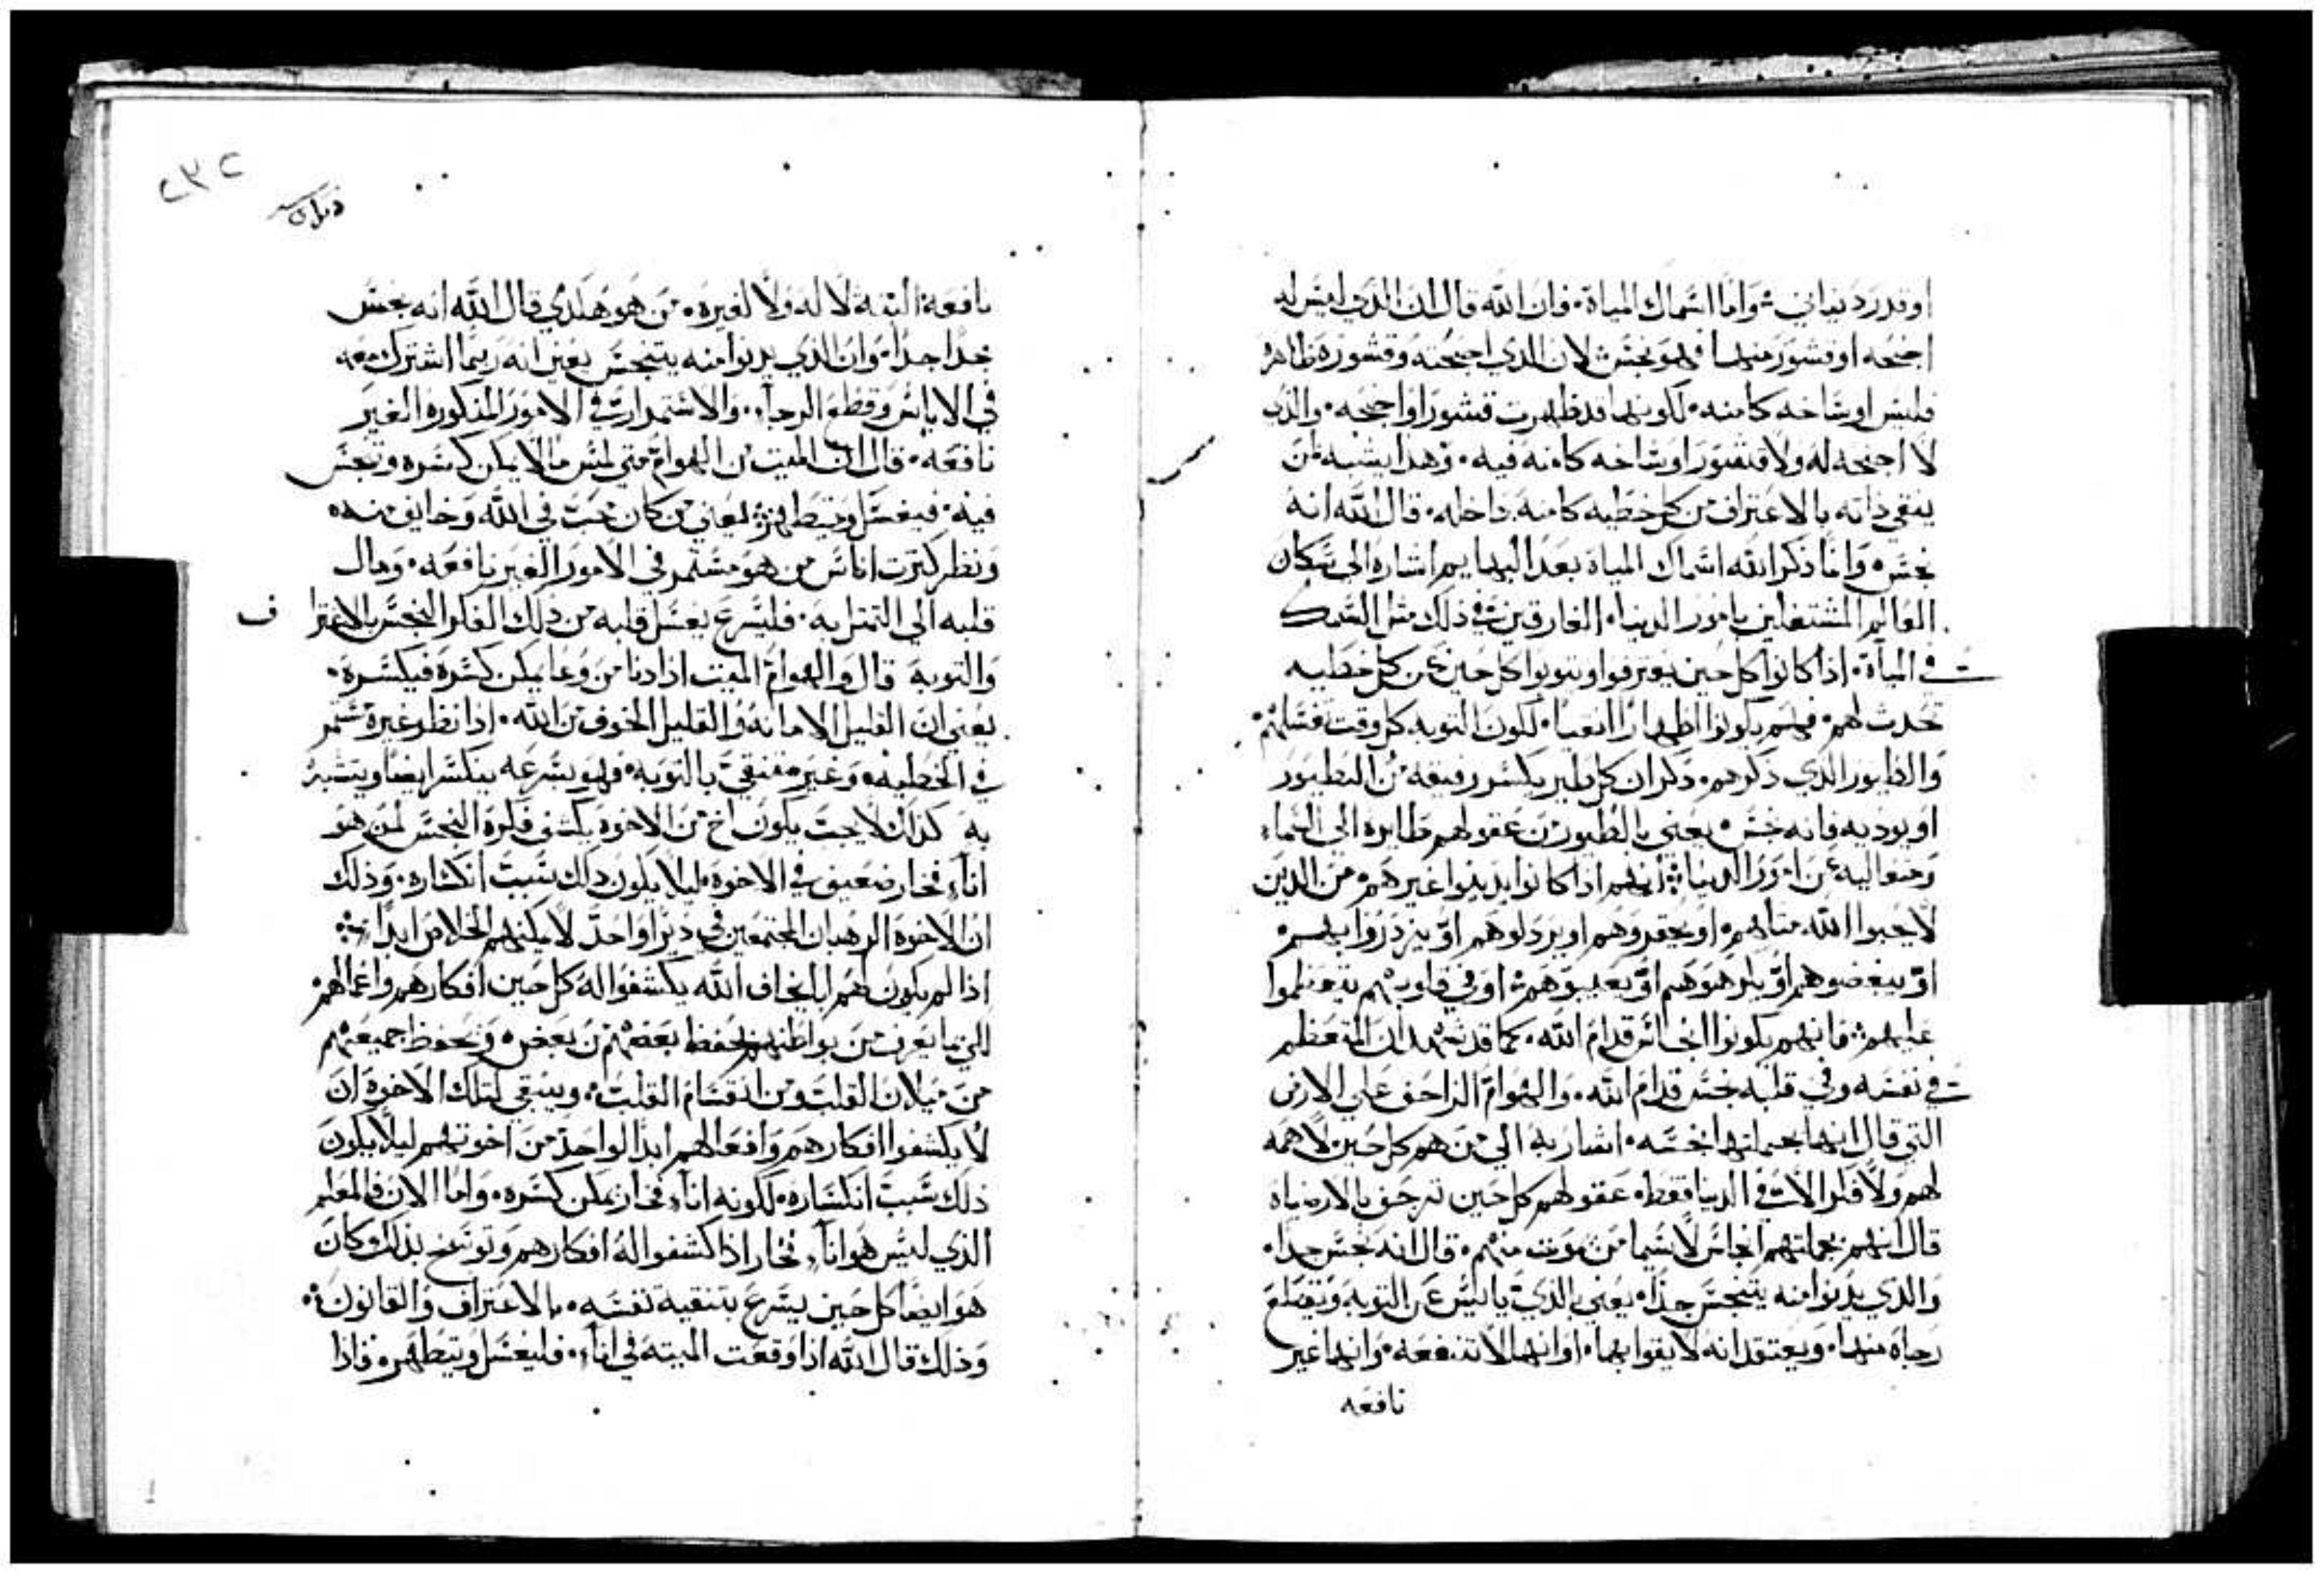 او قدر دنياني ❊ واما اسماك المياة. فان الله قال ان الذي ليس له
اجنحه او قشور منهما فهو نجس لان الذي اجنحته وقشوره ظاهره
فليس اوساخه كامنه. لكونها قد ظهرت قشورا واجنحه. والذي
لا اجنحه له ولا قشور اوساخه كامنه فيه. وهذا يشبه لمن
ينقي ذاته بالاعتراف من كل خطيه كامنه داخله. قال الله انه
نجس. وانما ذكر الله اسماك المياة بعد البهايم اشاره الي سكان
العالم المشتغلين بامور الدنيا. الغارقين في ذلك مثل السمك
في المياة. اذا كانوا كل حين يعترفوا ويتوبوا كل حين عن كل خطيه
تحدث لهم. فهم يكونوا اطهارا انقيا. لكون التوبه كل وقت غسلتهم
والطيور الذي ذكرهم. ذكر ان كل طير يكسر رفيقه من الطيور
او يوديه فانه نجس. يعني بالطيور من عقولهم طايره الي السماء
ومتعاليه عن امور الدنيا. انهم اذا كانوا يدينوا غيرهم. من الذين
لا يحبوا الله مثلهم. او يحقروهم او يرذلوهم او يزدروا بهم.
او يبغضوهم او يكرهوهم او يعيبوهم. او في قلوبهم يتعظموا
عليهم. فانهم يكونوا انجاس قدام الله. كما قد شهد ان المتعظم
في نفسه وفي قلبه نجس قدام الله. والهوام الزاحف علي الارض
التي قال انها بجملتها نجسه. اشار به الي من هم كل حين لا همه
لهم ولا فكر الا في الدنيا فقط. عقولهم كل حين تزحف بالارضيات
قال انهم بجملتهم انجاس لا سيما من يموت منهم. قال انه نجس جدا.
والذي يدنوا منه يتنجس جدا. يعني بالذي ياييس عن التوبه ويقطع
رجاه منها. ويعتقد انه لا يقوا بها. او انها لا تنفعه. وانها غير
نافعه
٢٣٢
نافعة البته لا له ولا لغيره. من هو هكذي قال الله انه نجس
جدا جدا. وان الذي يدنوا منه يتنجس يعني انه ربما اشترك معه
في الاياس وقطع الرجاء. والاستمرار في الامور المذكوره الغير
نافعه. قال ان الميت من الهوام متي لمس ما لا يمكن كسره وتنجس
فيه. فيغسل ويتطهر. يعني من كان محب في الله وخايف منه
ونظر كترت اناس من هو مستمر في الامور الغير نافعه. ومال
قلبه الي التمثل به. فليسرع يغسل قلبه من ذلك الفكر النجس بالاعترا ف
والتوبه قال والهوام الميت اذا دنا من وعا يمكن كسره فيكسره.
يعني ان القليل الامانه والقليل الخوف من الله. اذا نظر غيره مستمر
في الخطيه. وغير متنقي بالتوبه. فهو بسرعه ينكسر ايضا ويتشبه
به كذلك لا يجب يكون اخ من الاخوة يكشف فكرة النجس لمن هو
اناء فخار ضعيف في الاخوة. ليلا يكون ذلك سبب انكساره. وذلك
ان الاخوة الرهبان المجتمعين في ديرا واحد لا يمكنهم الخلاص ابدا
اذا لم يكون لهم اب يخاف الله يكشفوا له كل حين افكارهم واعمالهم
لكي بما يعرف من بواطنهم يحفظ بعضهم من بعض. ويحفظ جميعهم
من ميلان القلب ومن انقسام القلب. وينبقي لتلك الاخوة ان
لا يكشفوا افكارهم وافعالهم ابدا لواحد من اخوتهم ليلا يكون
ذلك سبب انكساره. لكونه اناء فخار يمكن كسره. واما الان فالمعلم
الذي ليس هو اناء فخار اذا كشفوا له افكارهم وتوسخ بذلك وكان
هو ايضا كل حين يسرع بتنقيه نفسه. بالاعتراف والقانون.
وذلك قال الله اذا وقعت الميته في اناء. فليغسل ويتطهر. فاذا